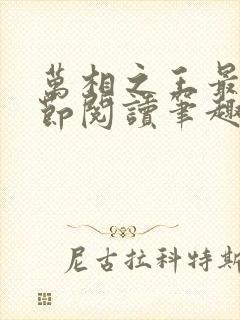 萬相之王最
節閱讀筆趣
尼古拉科特斯